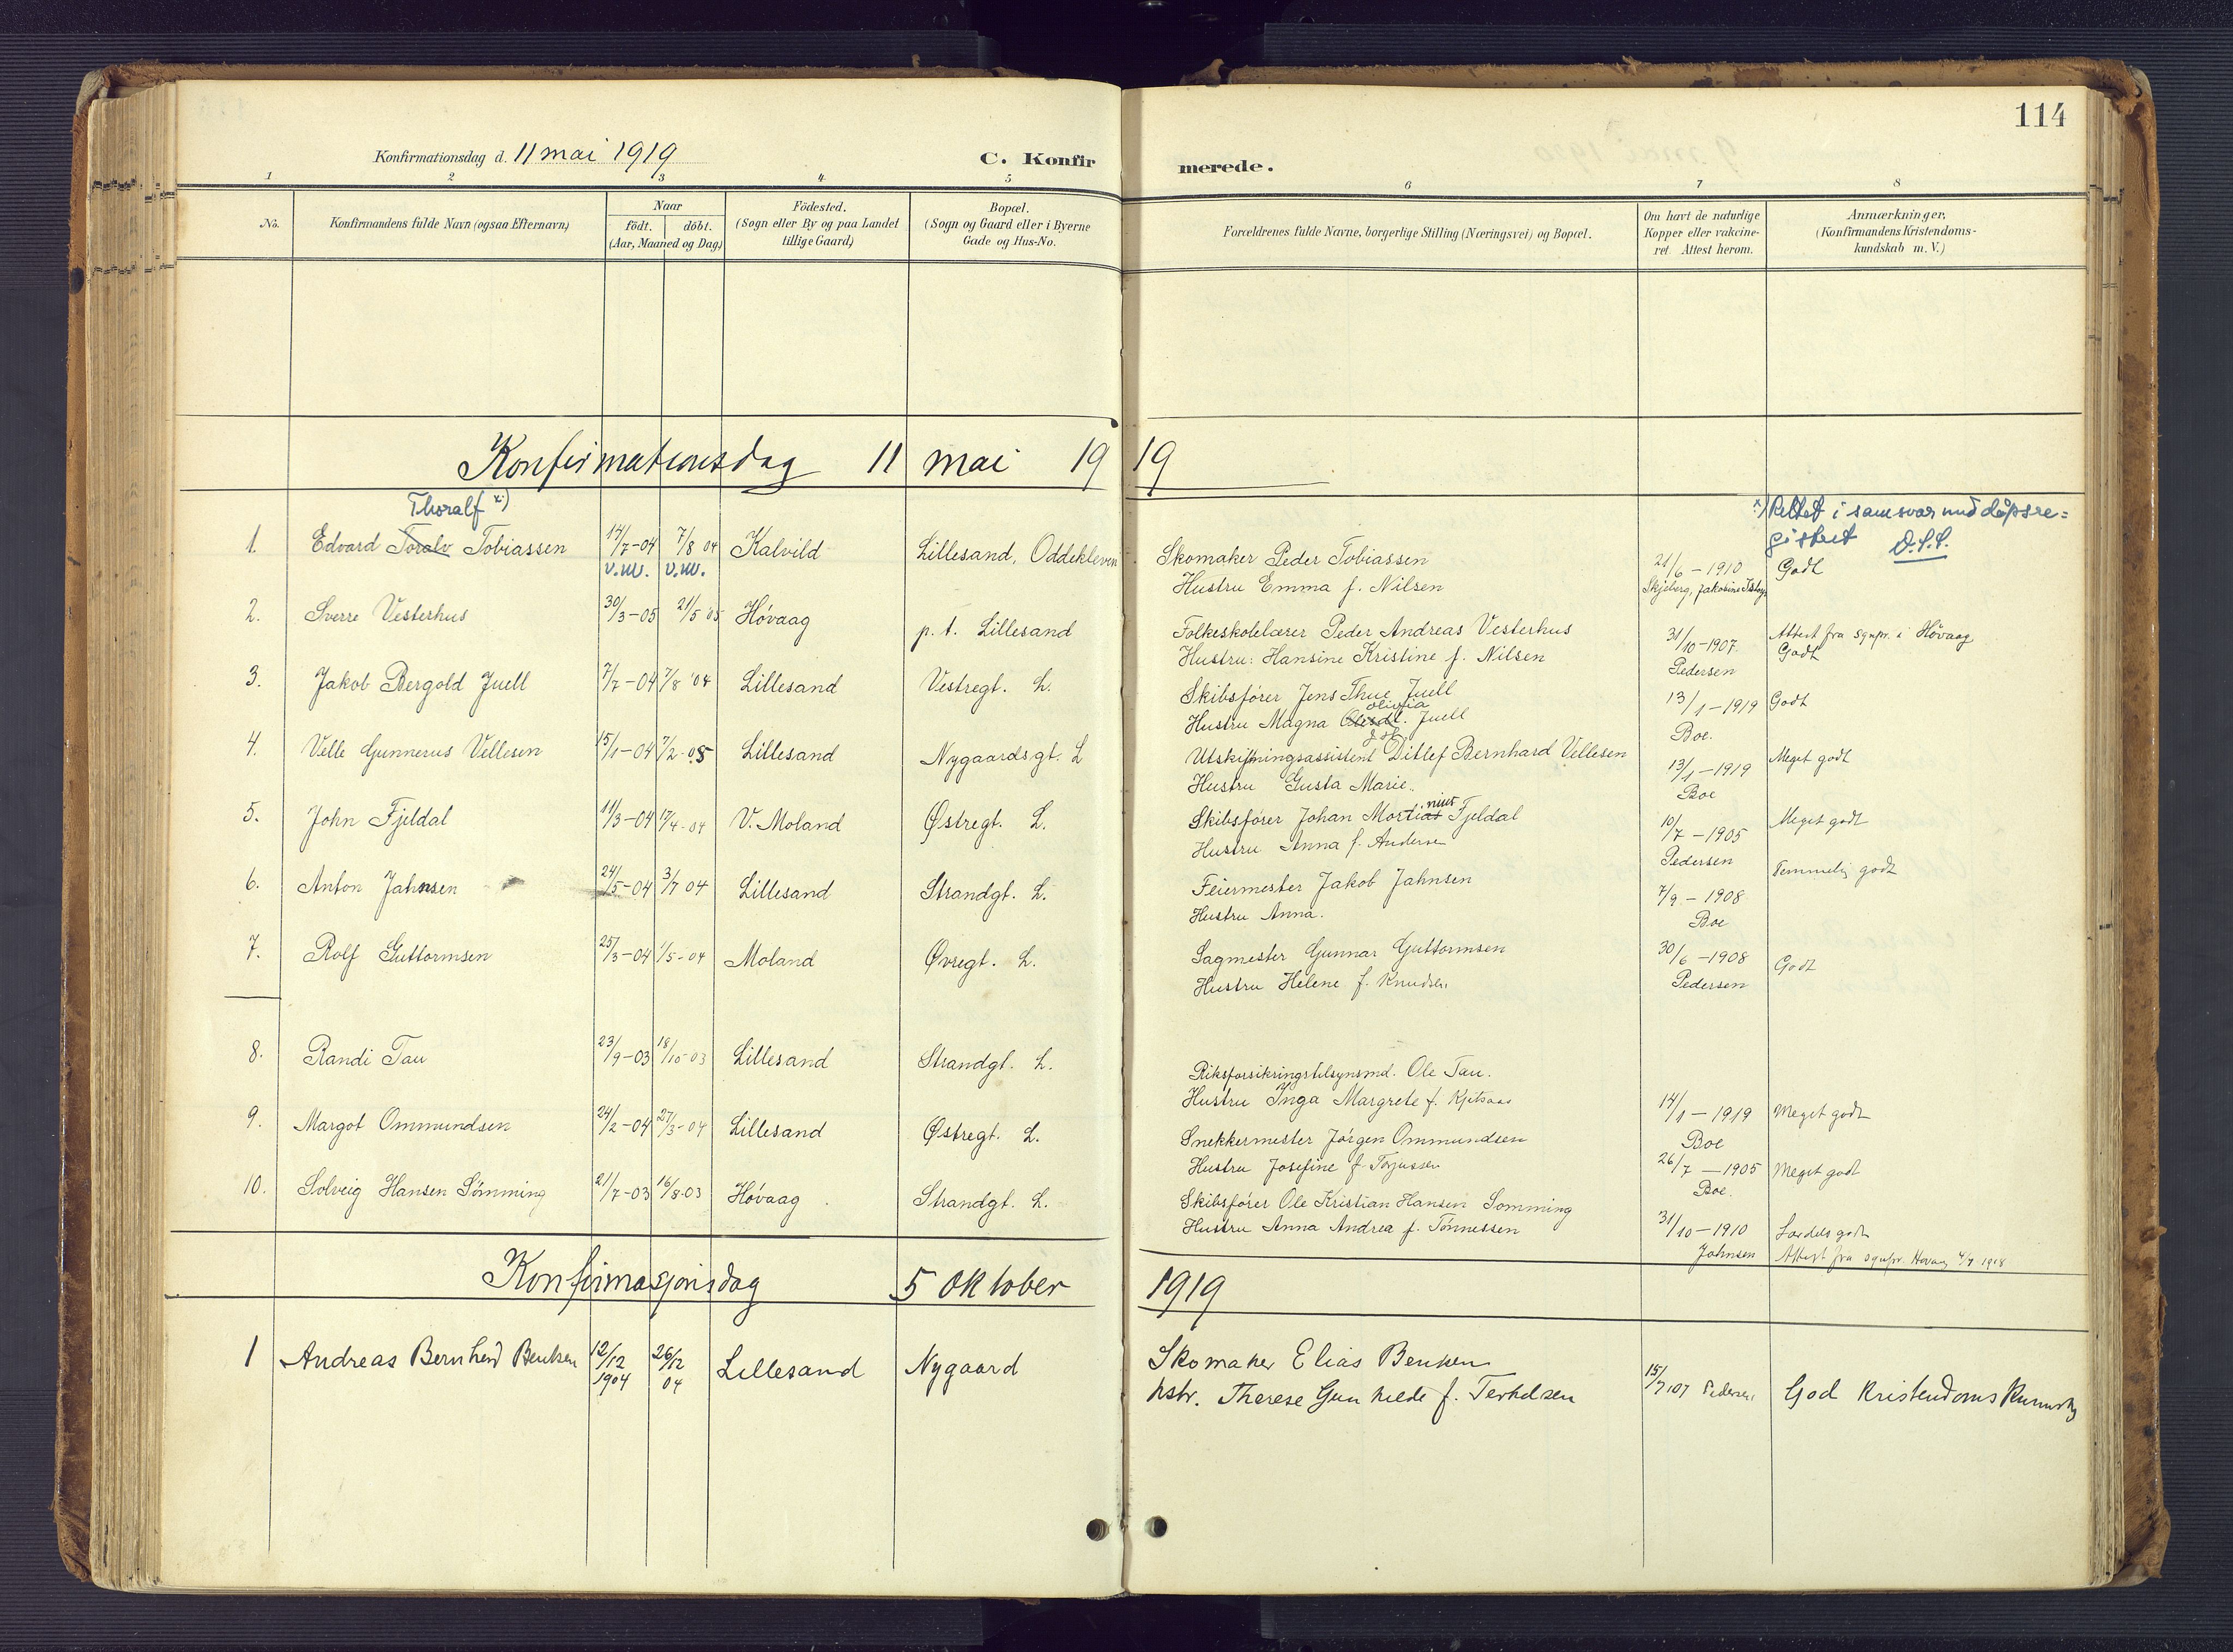 114
Konfirmationsdag d. 11 mai 1919
C. Konfir merede.
1 2 3 4 5 6 7 8
No.
Konfirmandens fulde Navn (ogsaa Efternavn)
Naar
födt. döbt.
(Aar, Maaned og Dag)
Födested.
(Sogn eller By og paa Landet
tillige Gaard)
Bopæl.
(Sogn og Gaard eller i Byerne
Gade og Hus-No.
Forældrenes fulde Navne, borgerlige Stilling (Næringsvei) og Bopæl.
Om havt de naturlige
Kopper eller vakcine-
ret Attest herom.
Anmærkninger.
(Konfirmandens Kristendoms-
kundskab m. V.)
Konfirmationsdag 11 mai 19 19
Thoralf x)
x) Rettet i samsvar med dåpsre=
gistret
1. Edvard Toralv Tobiassen 14/7-04 7/8 04 Kalvild Lillesand, Oddekleven Skomaker Peder Tobiassen 21/6-1910 Godt
v.m. v.m. Hustru Emma f. Nilsen Skjeberg, Jakobine
2. Sverre Vesterhus 30/3-05 21/5 05 Høvaag p. t. Lillesand Folkeskolelærer Peder Andreas Vesterhus 31/10-1907. Attest fra sgnpr. i Høvaag
Hustru: Hansine Kristine f. Nilsen Pedersen Godt
3. Jakob Bergold Juell 7/7-04 7/8 '04 Lillesand Vestregt. L. Skibsfører Jens Thue Juell 13/1-1919 Godt
olivia
Hustru Magna Juell Boe.
4. Velle Gunnerus Vellesen 15/1-04 7/2-05 Lillesand Nygaardsgt. L Utskiftningsassistent Ditlef Bernhard Vellesen 13/1-1919 Meget godt
Hustru Gusta Marie. Boe
5. John Fjeldal 11/3-04 17/4-04 V. Moland Østregt. L. Skibsfører Johan Mortinius Fjeldal 10/7-1905 Meget godt
Hustru Anna f. Andersen Pedersen
6. Anton Jahnsen 24/5-04 3/7 04 Lillesand Strandgt. L. Feiermester Jakob Jahnsen 7/9-1908 Temmelig godt
Hustru Anna. Boe
7. Rolf Guttormsen 25/3-04 1/5-04 Moland Øvregt. L. Sagmester Gunnar Guttormsen 30/6-1908 Godt
Hustru Helene f. Knudsen Pedersen
8. Randi Tau 23/9-03 18/10-03 Lillesand Strandgt. L. Riksforsikringstilsynsmd. Ole Tau. 14/1-1919 Meget godt
Hustru Inga Margrete f. Boe
9. Margot Ommundsen 24/2-04 27/3-04 Lillesand Østregt. L. Snekkermester Jørgen Ommundsen 26/7-1905 Meget godt
Hustru Josefine f. Torjussen Boe.
10. Solveig Hansen Sömming 21/7-03 16/8-03 Høvaag Strandgt. L. Skibsfører Ole Kristian Hansen Somming 31/10-1910 Særdeles godt
Hustru Anna Andrea f. Tønnessen Johnsen Attest fra sgnpr. Høvaag 1918
Konfirmasjonsdag 5 Oktober 1919
1 Andreas Bernherd Bentsen 12/12 1904 26/12 04 Lillesand Nygaard Skomaker Elias Bentsen 15/7 07 Pedersen God Kristendoms
hstr. Therese Gunhilde f. Terkelsen